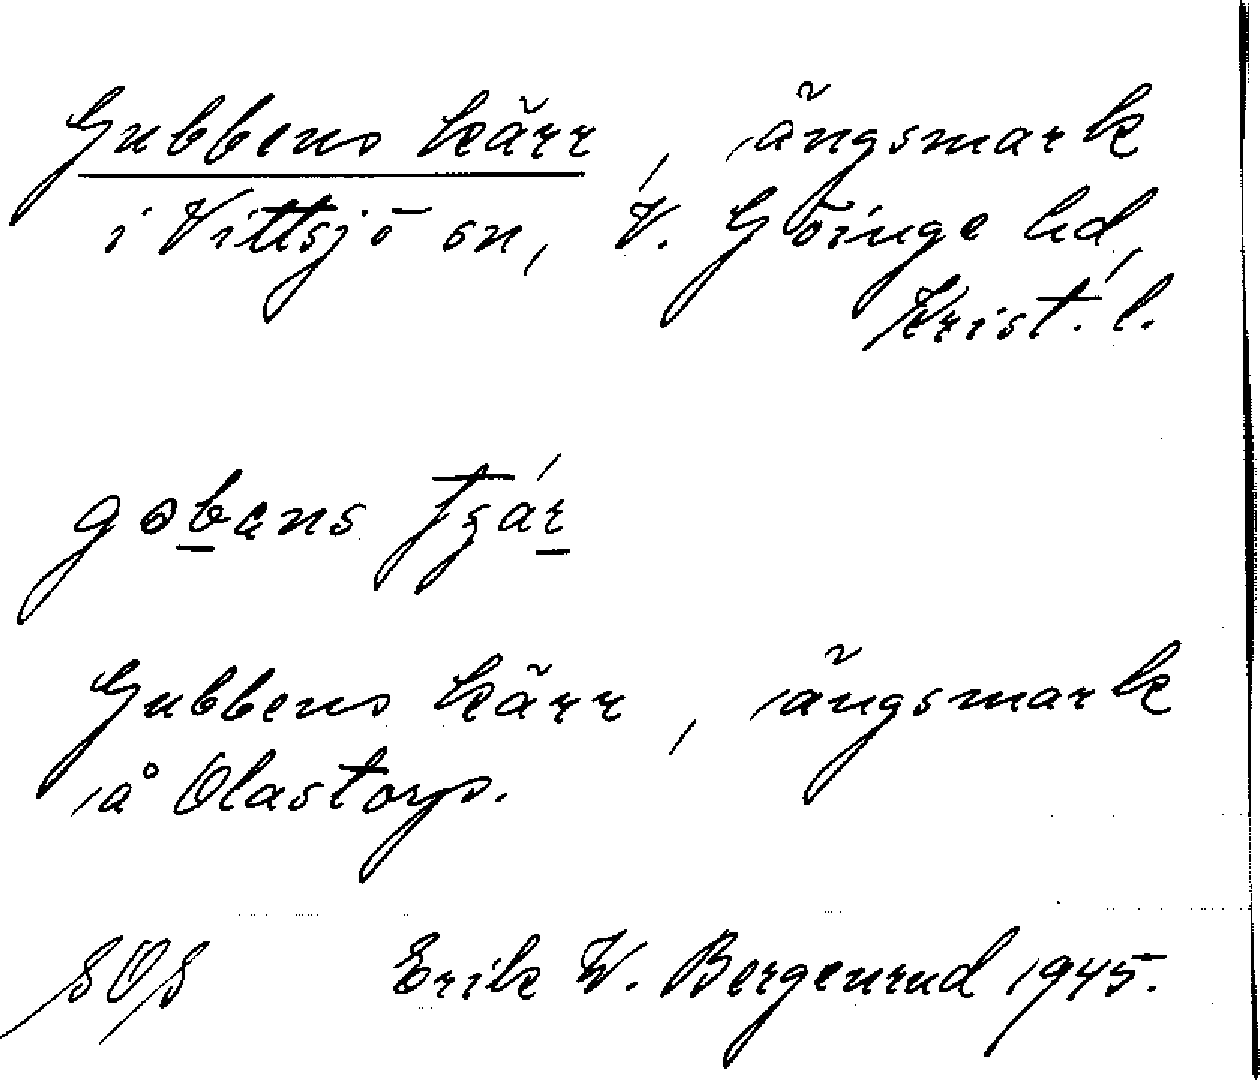 Gubbens kärr, ängsmark
i Vittsjö sn, V. Göinge hd,
Krist. l.
Gubbens kärr, ängsmark
å Olastorp.
SOS Erik W. Bergenrud 1945.